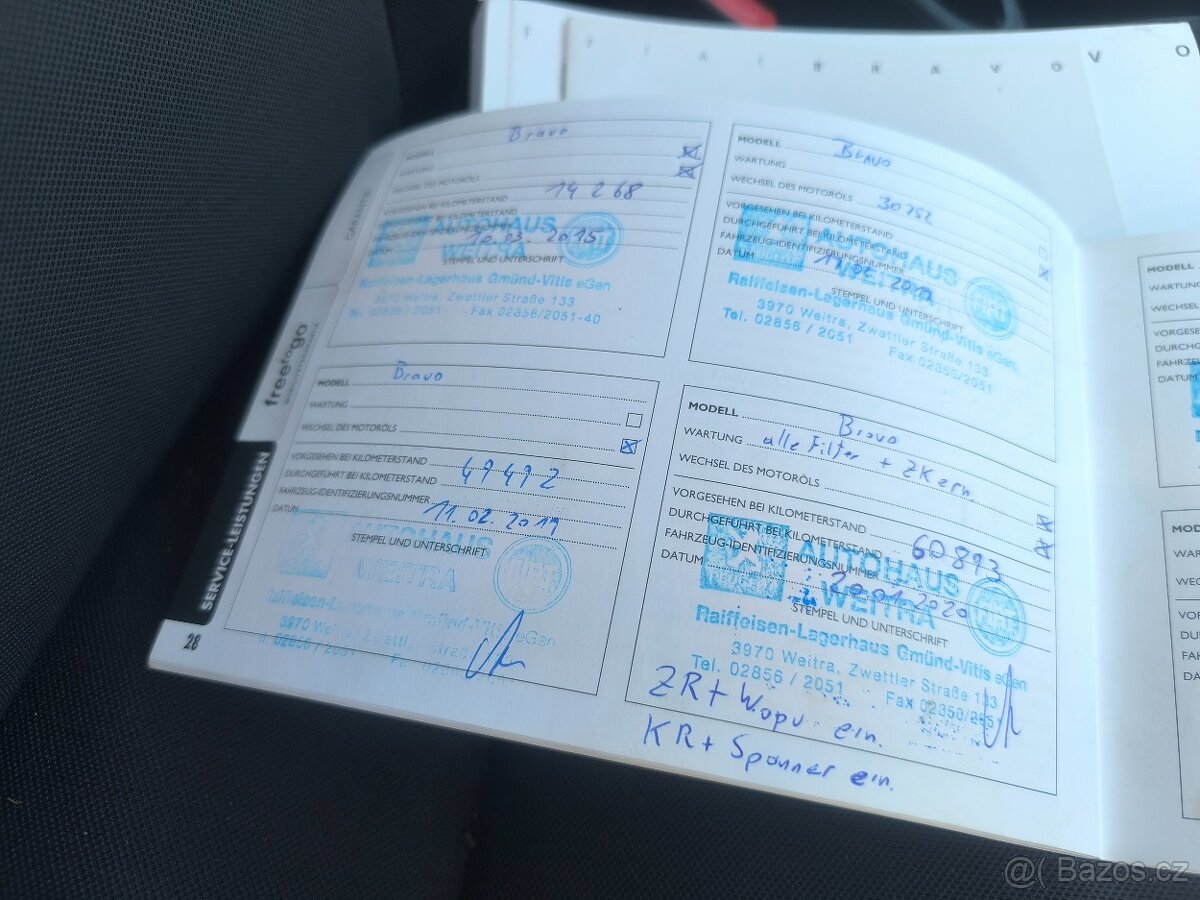 F I A T B R A V O
V O
GARANTIE
free to go
SERVICE-LEISTUNGEN
28
Bravo
MODELL
WARTUNG
WECHSEL DES MOTORÖLS
14 268
VORGESEHEN BEI KILOMETERSTAND
DURCHGEFÜHRT BEI KILOMETERSTAND
AUTOHAUS
WEITRA
10.03.2015
DATUM
STEMPEL UND UNTERSCHRIFT
Raiffeisen-Lagerhaus Gmünd-Vitis eGen
3970 Weitra, Zwettler Straße 133
Tel. 02856 / 2051 Fax 02856/2051-40
MODELL Bravo
WARTUNG
WECHSEL DES MOTORÖLS
30752
VORGESEHEN BEI KILOMETERSTAND
DURCHGEFÜHRT BEI KILOMETERSTAND
FAHRZEUG-IDENTIFIZIERUNGSNUMMER
DATUM
AUTOHAUS
WEITRA
STEMPEL UND UNTERSCHRIFT
Raiffeisen-Lagerhaus Gmünd-Vitis eGen
3970 Weitra, Zwettler Straße 133
Tel. 02856 / 2051 Fax 02856/2051
MODELL Bravo
WARTUNG
WECHSEL DES MOTORÖLS
VORGESEHEN BEI KILOMETERSTAND
DURCHGEFÜHRT BEI KILOMETERSTAND 49492
FAHRZEUG-IDENTIFIZIERUNGSNUMMER
DATUM 11.02.2019
AUTOHAUS
WEITRA
STEMPEL UND UNTERSCHRIFT
Raiffeisen-Lagerhaus Gmünd-Vitis eGen
3970 Weitra, Zwettler Straße
02856 / 2051
MODELL Bravo
WARTUNG alle Filter + ZKern
WECHSEL DES MOTORÖLS
VORGESEHEN BEI KILOMETERSTAND
DURCHGEFÜHRT BEI KILOMETERSTAND 60893
FAHRZEUG-IDENTIFIZIERUNGSNUMMER
DATUM 20.01.2020
PEUGEOT
AUTOHAUS
WEITRA
STEMPEL UND UNTERSCHRIFT
Raiffeisen-Lagerhaus Gmünd-Vitis eGen
3970 Weitra, Zwettler Straße 133
Tel. 02856 / 2051 Fax 02856/2051
ZR + Wapu ein.
KR + Spanner ein.
MODELL
WARTUNG
WECHSEL
VORGESE
DURCHG
FAHRZE
DATUM
MOD
WAR
WEC
VOR
DU
FAH
DA
Bazos.cz